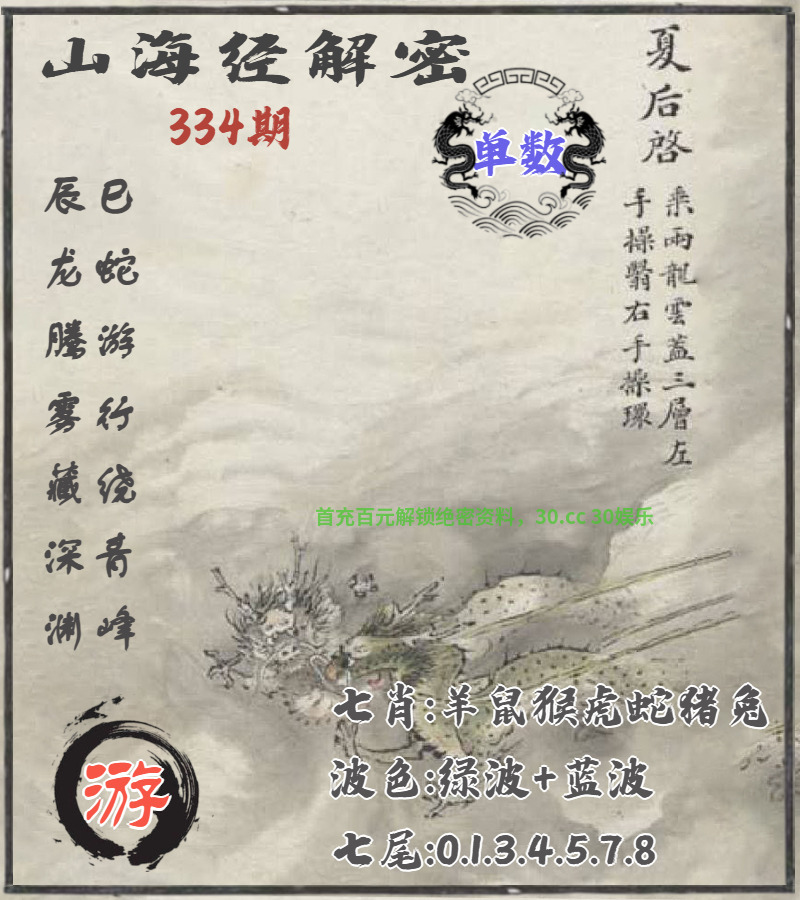 山海经解密
334期
单数
夏后启
乘兩龍雲蓋三層左
手操翳右手操環
辰龙腾雾藏深渊
巳蛇游行绕青峰
首充百元解锁绝密资料。30.cc 30娱乐
七肖:羊鼠猴虎蛇猪兔
波色:绿波+蓝波
七尾:0.1.3.4.5.7.8
游